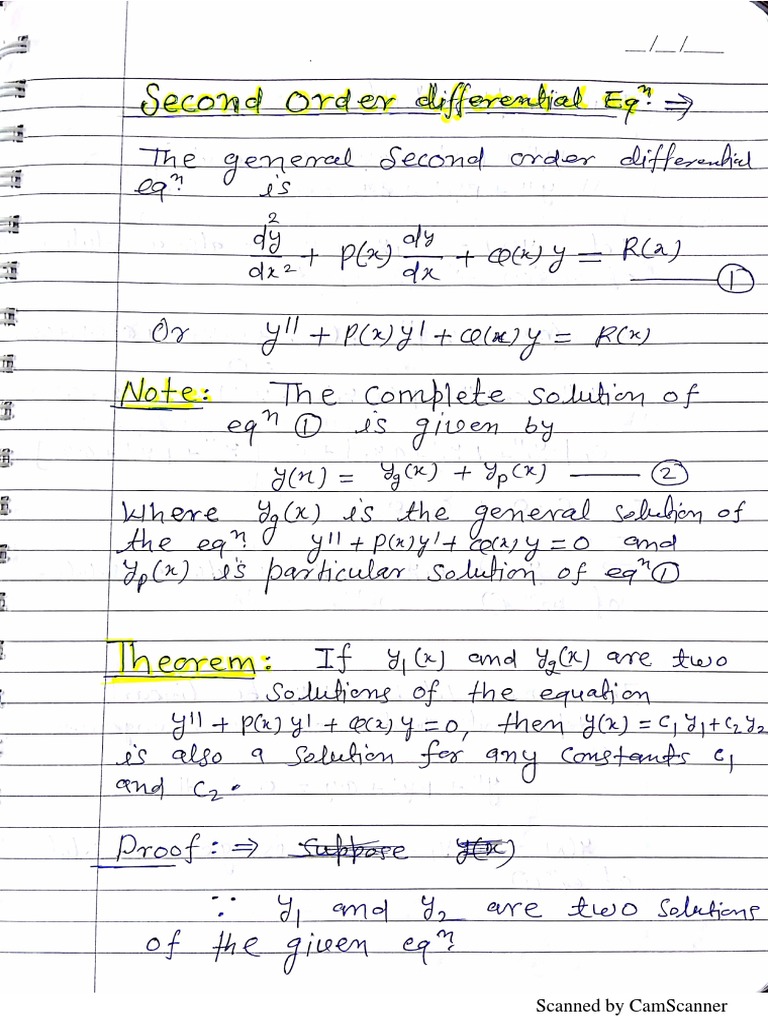 _/_/_
Second Order differential Eqⁿ. ⇒
The general Second order differential
eqⁿ. is
d²y/dx² + P(x) dy/dx + Q(x) y = R(x) —— ①
Or y'' + P(x) y' + Q(x) y = R(x)
Note: The complete solution of
eqⁿ ① is given by
y(x) = yg(x) + yp(x) —— ②
Where yg(x) is the general solution of
the eqⁿ. y'' + P(x) y' + Q(x) y = 0 and
yp(x) is particular solution of eqⁿ ①
Theorem: If y₁(x) and y₂(x) are two
solutions of the equation
y'' + P(x) y' + Q(x) y = 0, then y(x) = c₁y₁ + c₂y₂
is also a solution for any constants c₁
and c₂.
Proof: ⇒ Suppose y(x)
∵ y₁ and y₂ are two solutions
of the given eqⁿ.
Scanned by CamScanner